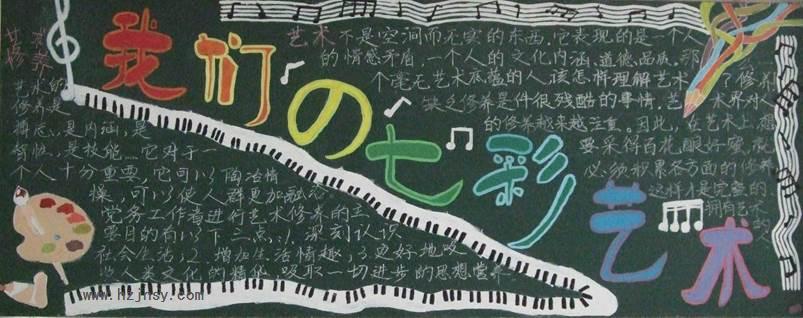 我们の七彩艺术
艺术不是空洞而无实的东西.它表现的是一个人
的情感矛盾.一个人的文化内涵.道德品质.那
个毫无艺术底蕴的人.该怎样理解艺术
修养
缺乏修养是件很残酷的事情.艺术界对人
的修养越来越注重。因此,在艺术上想
要采得百花酿好蜜.就
必须积累各方面的修养
这样才是完整的
拥有艺术
的人
艺术
修养
艺术的
修养是
是内涵,是
智慧,是技能 它对于一
个人十分重要,它可以陶冶情
操,可以使人群更加融洽
党务工作者进行艺术修养的主
要目的有以下三点:1.深刻认识
社会生活;2.增加生活情趣;3.更好地吸
收人类文化的精华,吸取一切进步的思想营养
www.hzjnsy.com